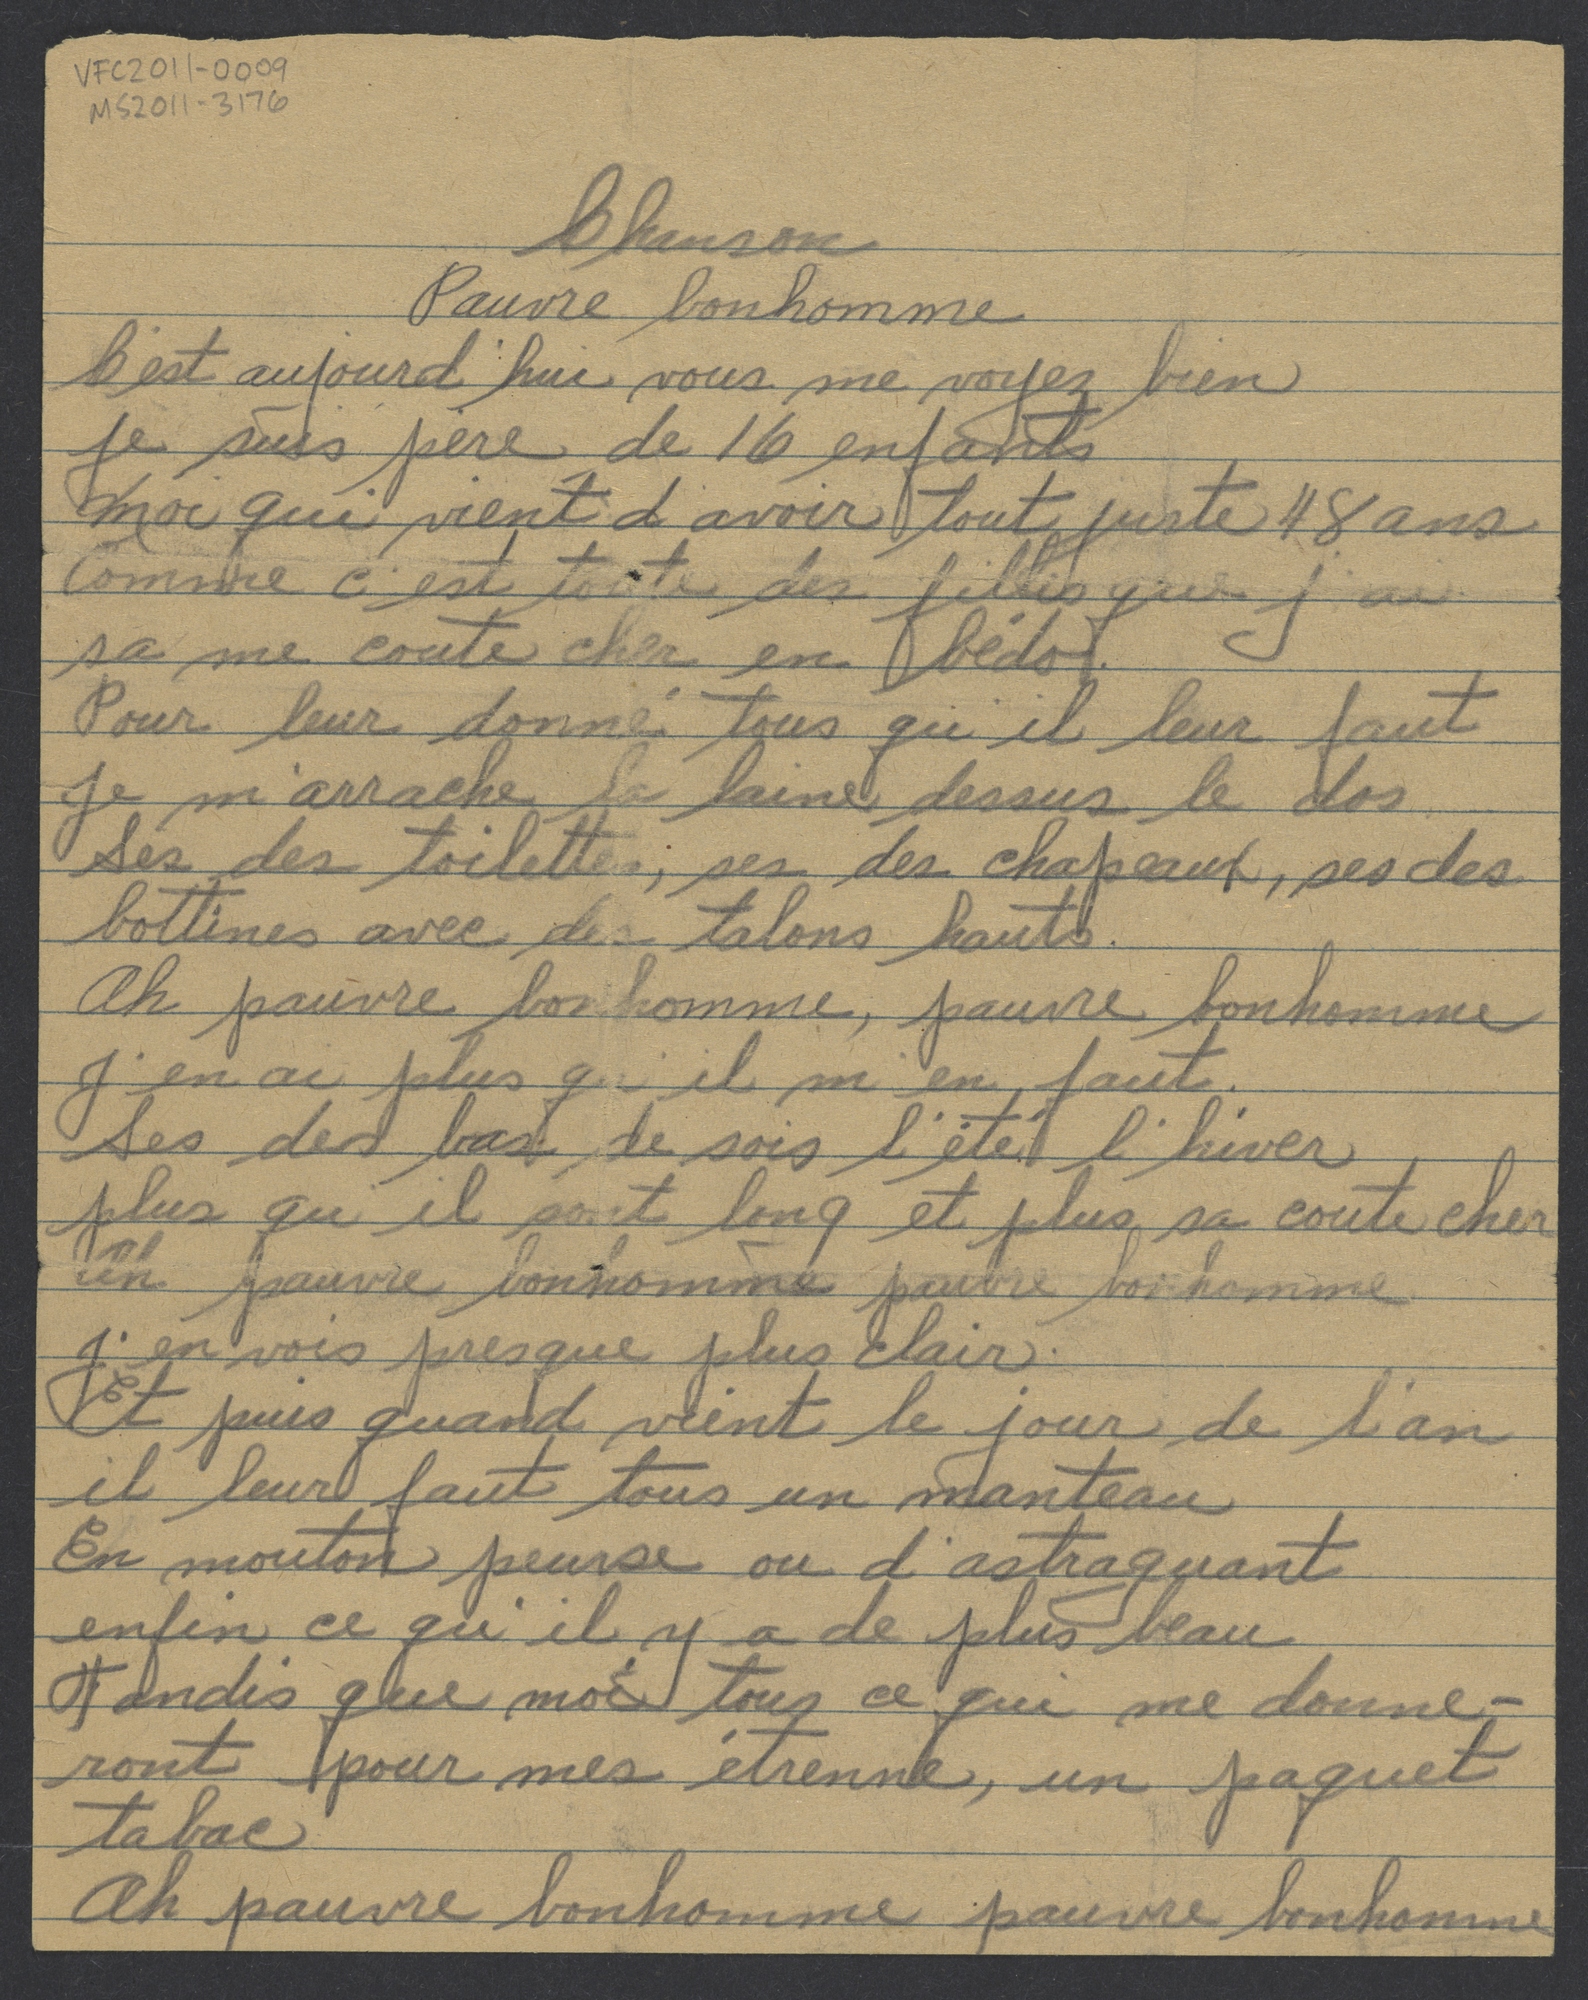 VFC2011-0009
MS2011-3176
Chanson
Pauvre bonhomme
C'est aujourd'hui vous me voyez bien
je suis père de 16 enfants
Moi qui vient d'avoir tout juste 48 ans
Comme c'est toute des filles que j'ai
sa me coute cher en bédo.
Pour leur donné tous qu'il leur faut
je m'arrache la laine dessus le dos
Ses des toilettes, ses des chapeaux, ses des
bottines avec des talons hauts.
Ah pauvre bonhomme, pauvre bonhomme
j'en ai plus qu'il m'en faut.
Ses des bas de sois l'été l'hiver
plus qu'il sont long et plus sa coute cher
Ah pauvre bonhomme pauvre bonhomme
j'en vois presque plus clair.
Et puis quand vient le jour de l'an
il leur faut tous un manteau
En mouton peurse ou d'astraquant
enfin ce qu'il y a de plus beau
Tandis que moi tous ce qui me donne-
ront pour mes étrenne, un paquet
tabac
Ah pauvre bonhomme pauvre bonhomme